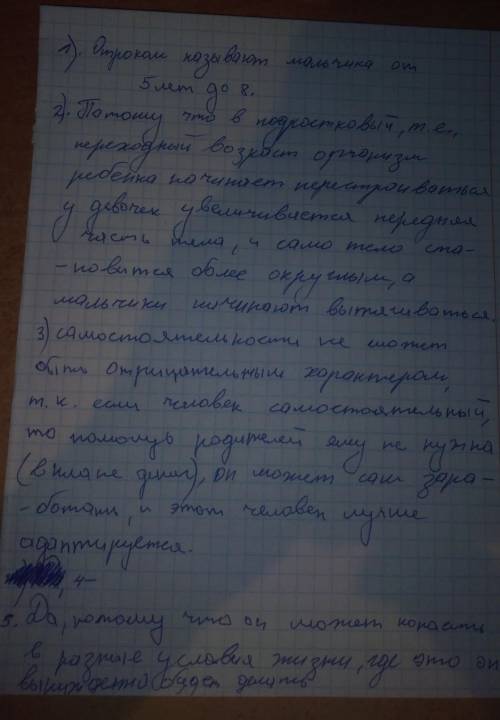 1). Отроком называют мальчика от
5 лет до 8.
2). Потому что в подростковый, т.е.,
переходный возраст организм
ребенка начинает перестраиваться
у девочек увеличивается передняя
часть тела, и само тело ста-
-новится более округлым, а
мальчики начинают вытягиваться.
3) самостоятельность не может
быть отрицательным характером,
т.к. если человек самостоятельный,
то помощь родителей ему не нужна
(в плане денег), он может сам зара-
-ботать, и этот человек лучше
адаптируется.
4-
5. Да, потому что он может попасть
в разные условия жизни, где это он
вынужденно будет делать